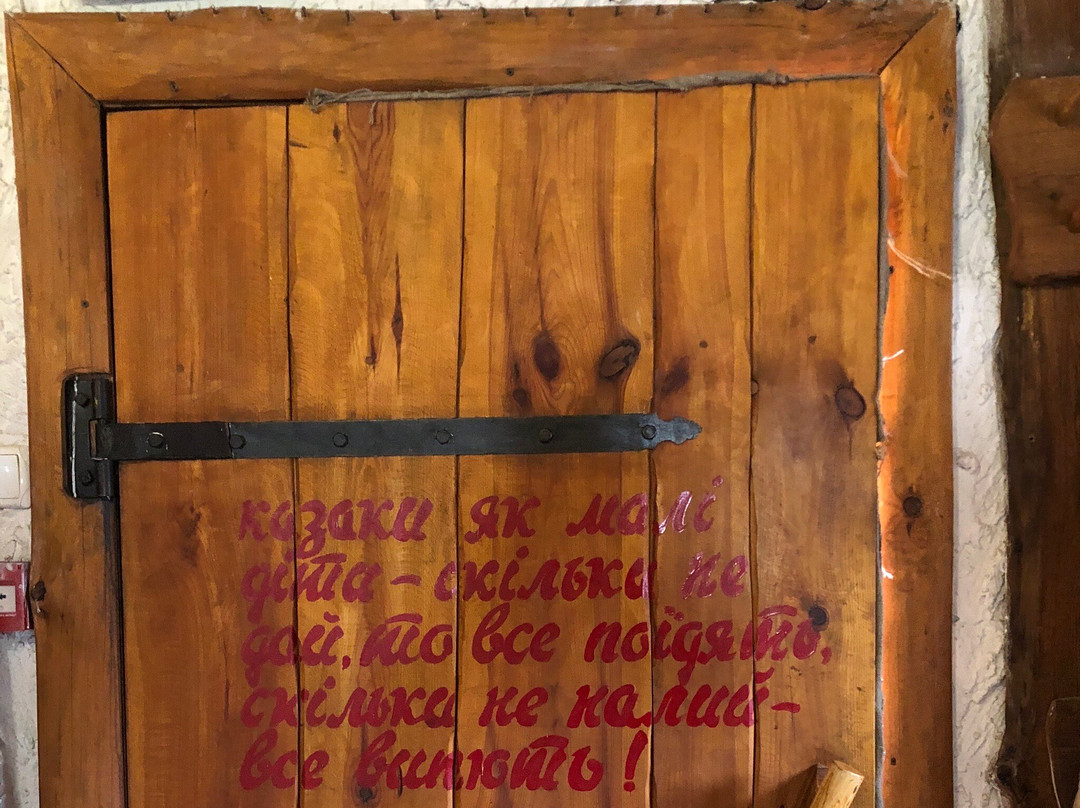 казаки як малі
діти - скільки не
дай, то все поїдять,
скільки не налий -
все випють!